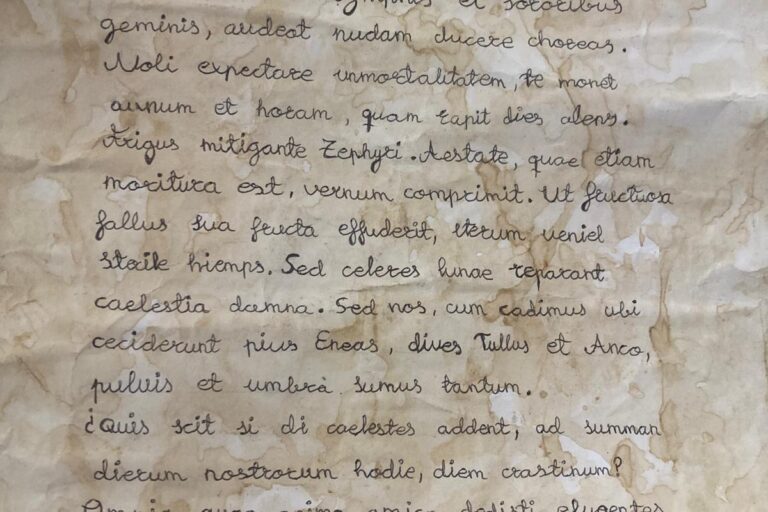 et sororibus
geminis, audeat nudam ducere choreas.
Noli expectare inmortalitatem, te monet
annum et horam, quam rapit dies alens.
Frigus mitigante Zephyri. Aestate, quae etiam
moritura est, vernum comprimit. Ut fructuosa
fallus sua fructa effuderit, iterum veniel
sterile hiemps. Sed celeres lunae reparant
caelestia damna. Sed nos, cum cadimus ubi
ceciderunt pius Eneas, dives Tullus et Anco,
puluis et umbra sumus tantum.
¿Quis scit si di caelestes addent, ad summan
dierum nostrorum hodie, diem crastinum?
amico dedisti